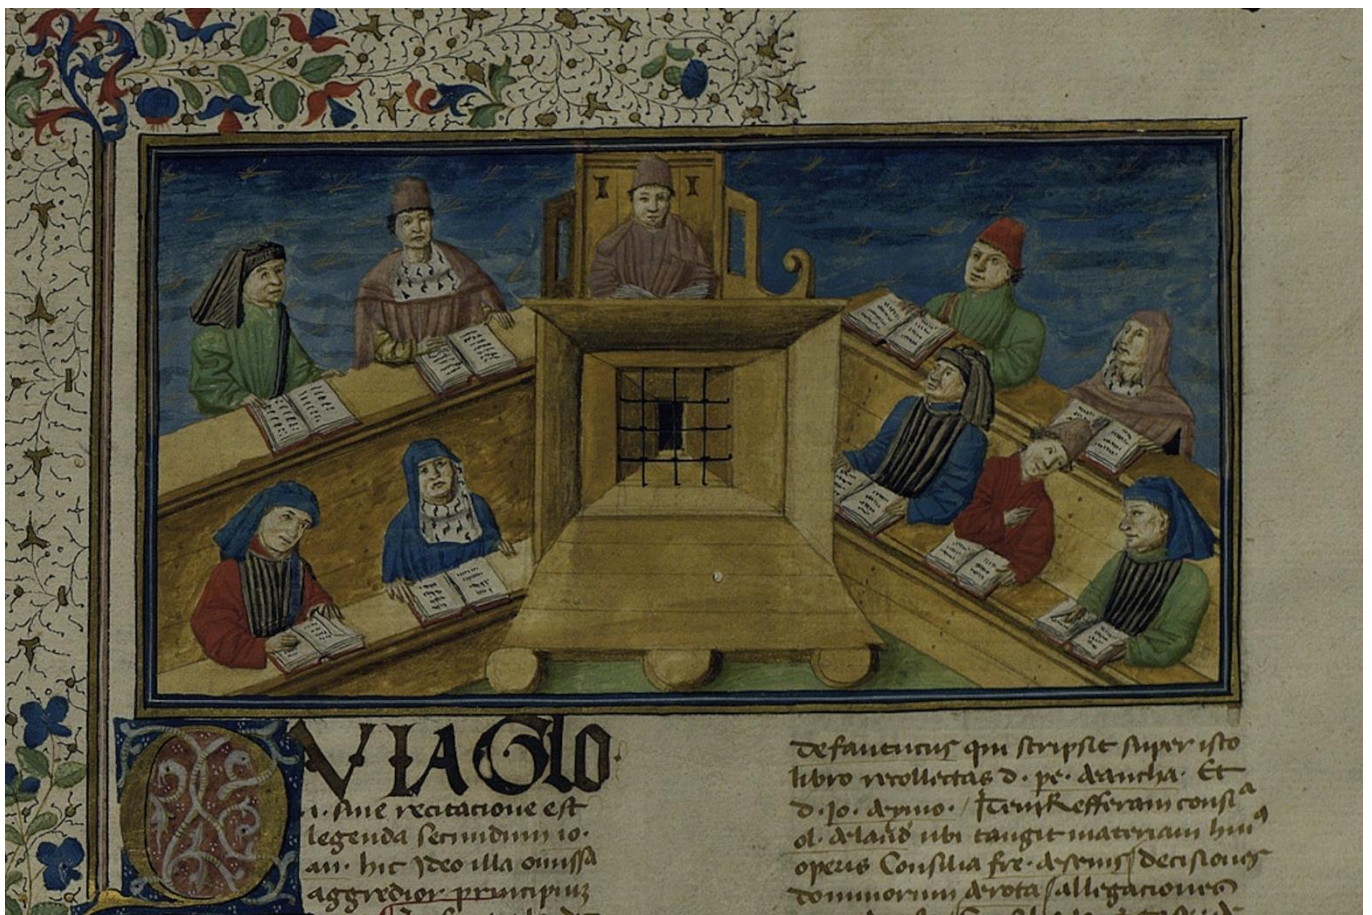 QVIA Glo
i. sine recitacione est
legenda secundum io.
an. hic Ideo illa omissa
aggredior principium
de fauentinis qui scripsit super isto
libro recollectas d. pe. de ancha. Et
d. Jo. de ymo. Item Refferam consi
ol. de laud ubi tangit materiam hui9
operis Consilia fre. de senis decisiones
dominorum de rota allegaciones